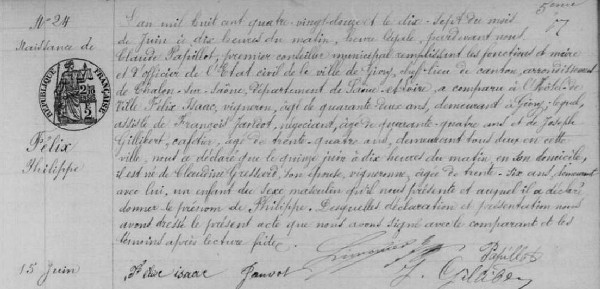 5ème
N° 24
Naissance de
RÉPUBLIQUE FRANÇAISE
Félix
Philippe
15 Juin
L'an mil huit cent quatre-vingt-douze et le dix-sept du mois
de Juin à dix heures du matin, heure légale, pardevant nous
Claude Papillot, premier conseiller municipal remplissant les fonctions de maire
et d'officier de l'Etat civil de la ville de Givry, chef-lieu de canton, arrondissement
de Chalon-sur-Saône, département de Saône-et-Loire, a comparu à l'Hôtel-de-
Ville Félix Isaac, vigneron, âgé de quarante deux ans, demeurant à Givry, lequel
assisté de François Jandot, négociant, âgé de quarante-quatre ans et de Joseph
cafetier, âgé de trente-quatre ans, demeurant tous deux en cette
ville, nous a déclaré que le quinze juin à dix heures du matin, en son domicile,
il est né de Claudine son épouse, vigneronne, âgée de trente-six ans, demeurant
avec lui, un enfant du sexe masculin qu'il nous présente et auquel il a déclaré
donner le prénom de Philippe. Lesquelles déclaration et présentation nous
avons dressé le présent acte que nous avons signé avec le comparant et les
témoins après lecture faite.
Papillot
isaac